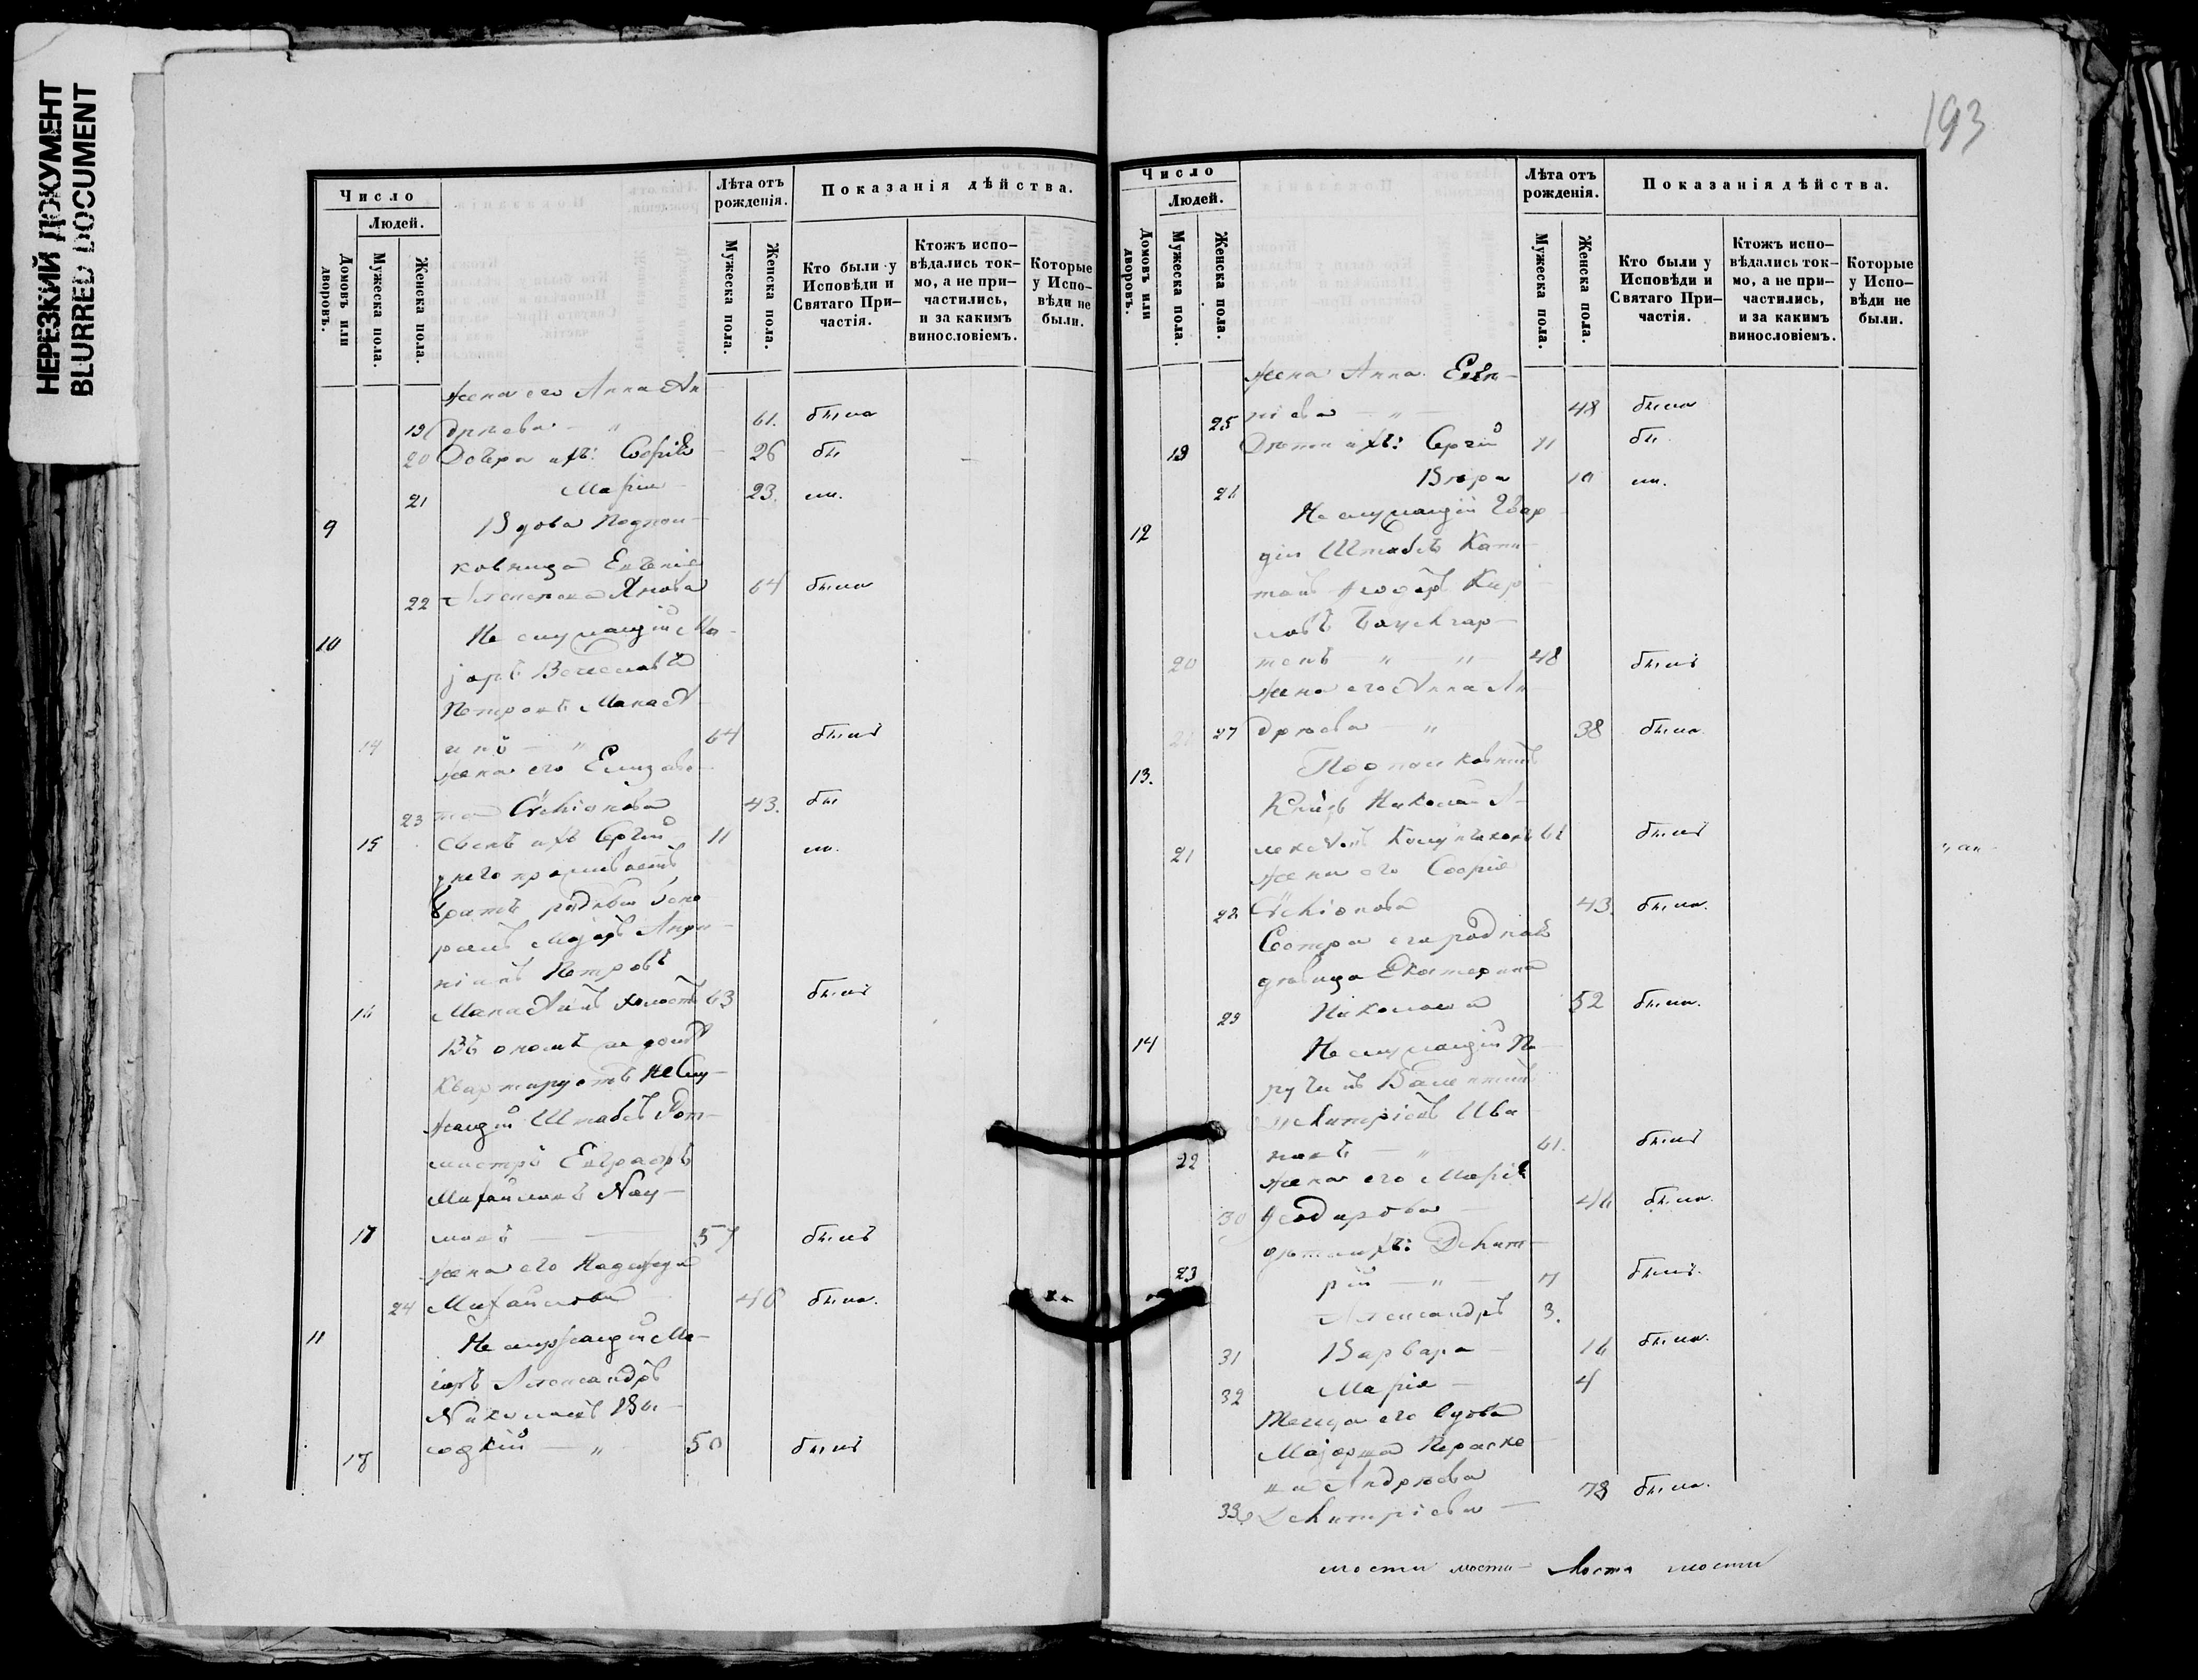 НЕРЕЗКИЙ ДОКУМЕНТ
BLURRED DOCUMENT
Число
Людей.
Домовъ или дворовъ.
Мужеска пола.
Женска пола.
Лѣта отъ рожденія.
Мужеска пола.
Женска пола.
Показанія дѣйства.
Кто были у Исповѣди и Святаго Причастія.
Ктожъ исповѣдались токмо, а не причастились, и за какимъ винословіемъ.
Которые у Исповѣди не были.
жена его Анна Ан-
19 дрѣева — " 61. была
20 Дочери ихъ: Софія 26 бы
21 Марія 23. ли.
9 Вдова Подпол-
ковница Евгенія
22 64 была
10 Не служащій Ма-
jоръ Вечеславъ
Петровъ
14 64 былъ
жена его Елизаве-
23 та 43. бы
15 Сынъ ихъ Сергій 11 ли.
у него проживаетъ
братъ родный Гене-
ралъ Маjоръ
Петровъ
16 холостъ 63 былъ
Въ ономъ же домѣ
Квартируетъ не слу-
жащій Штабсъ Рот-
мистръ Евграфъ
Михайловъ Нау-
17 мовъ 57 былъ
жена его Надежда
24 Михайлова 40 была.
11 Не служащій Ма-
iоръ Александръ
Николаевъ
18 — " 50 былъ
193
Число
Людей.
Домовъ или дворовъ.
Мужеска пола.
Женска пола.
Лѣта отъ рожденія.
Мужеска пола.
Женска пола.
Показанія дѣйства.
Кто были у Исповѣди и Святаго Причастія.
Ктожъ исповѣдались токмо, а не причастились, и за какимъ винословіемъ.
Которые у Исповѣди не были.
жена Анна
25 48 была
19 Дѣти ихъ: Сергій 11 бы
26 Вѣра 10 ли.
12 Не служащій Гвар-
діи Штабсъ Капи-
танъ Ѳеодоръ Кар-
ловъ Баумгар-
20 тенъ — " — " — 48 былъ
жена его Анна Ан-
27 дрѣева — " 38 была
13. Подполковникъ
Князь Николай А-
21 61 былъ
жена его Софія
28 43. была.
Сестра его родная
дѣвица Екатерина
29 52 была.
14 Не служащій По-
ручикъ Валентинъ
Дмитріевъ Ива-
22 новъ — " 61. былъ
жена его Марія
30 Ѳеодорова 46 была.
дѣти ихъ: Дмит-
23 рій — " — 7 былъ.
Александръ 3.
31 Варвара 16 была.
32 Марія — 4
Теща его вдова
Маjорша Параске-
ва Андрѣева
33 Дмитріева — 78 была.